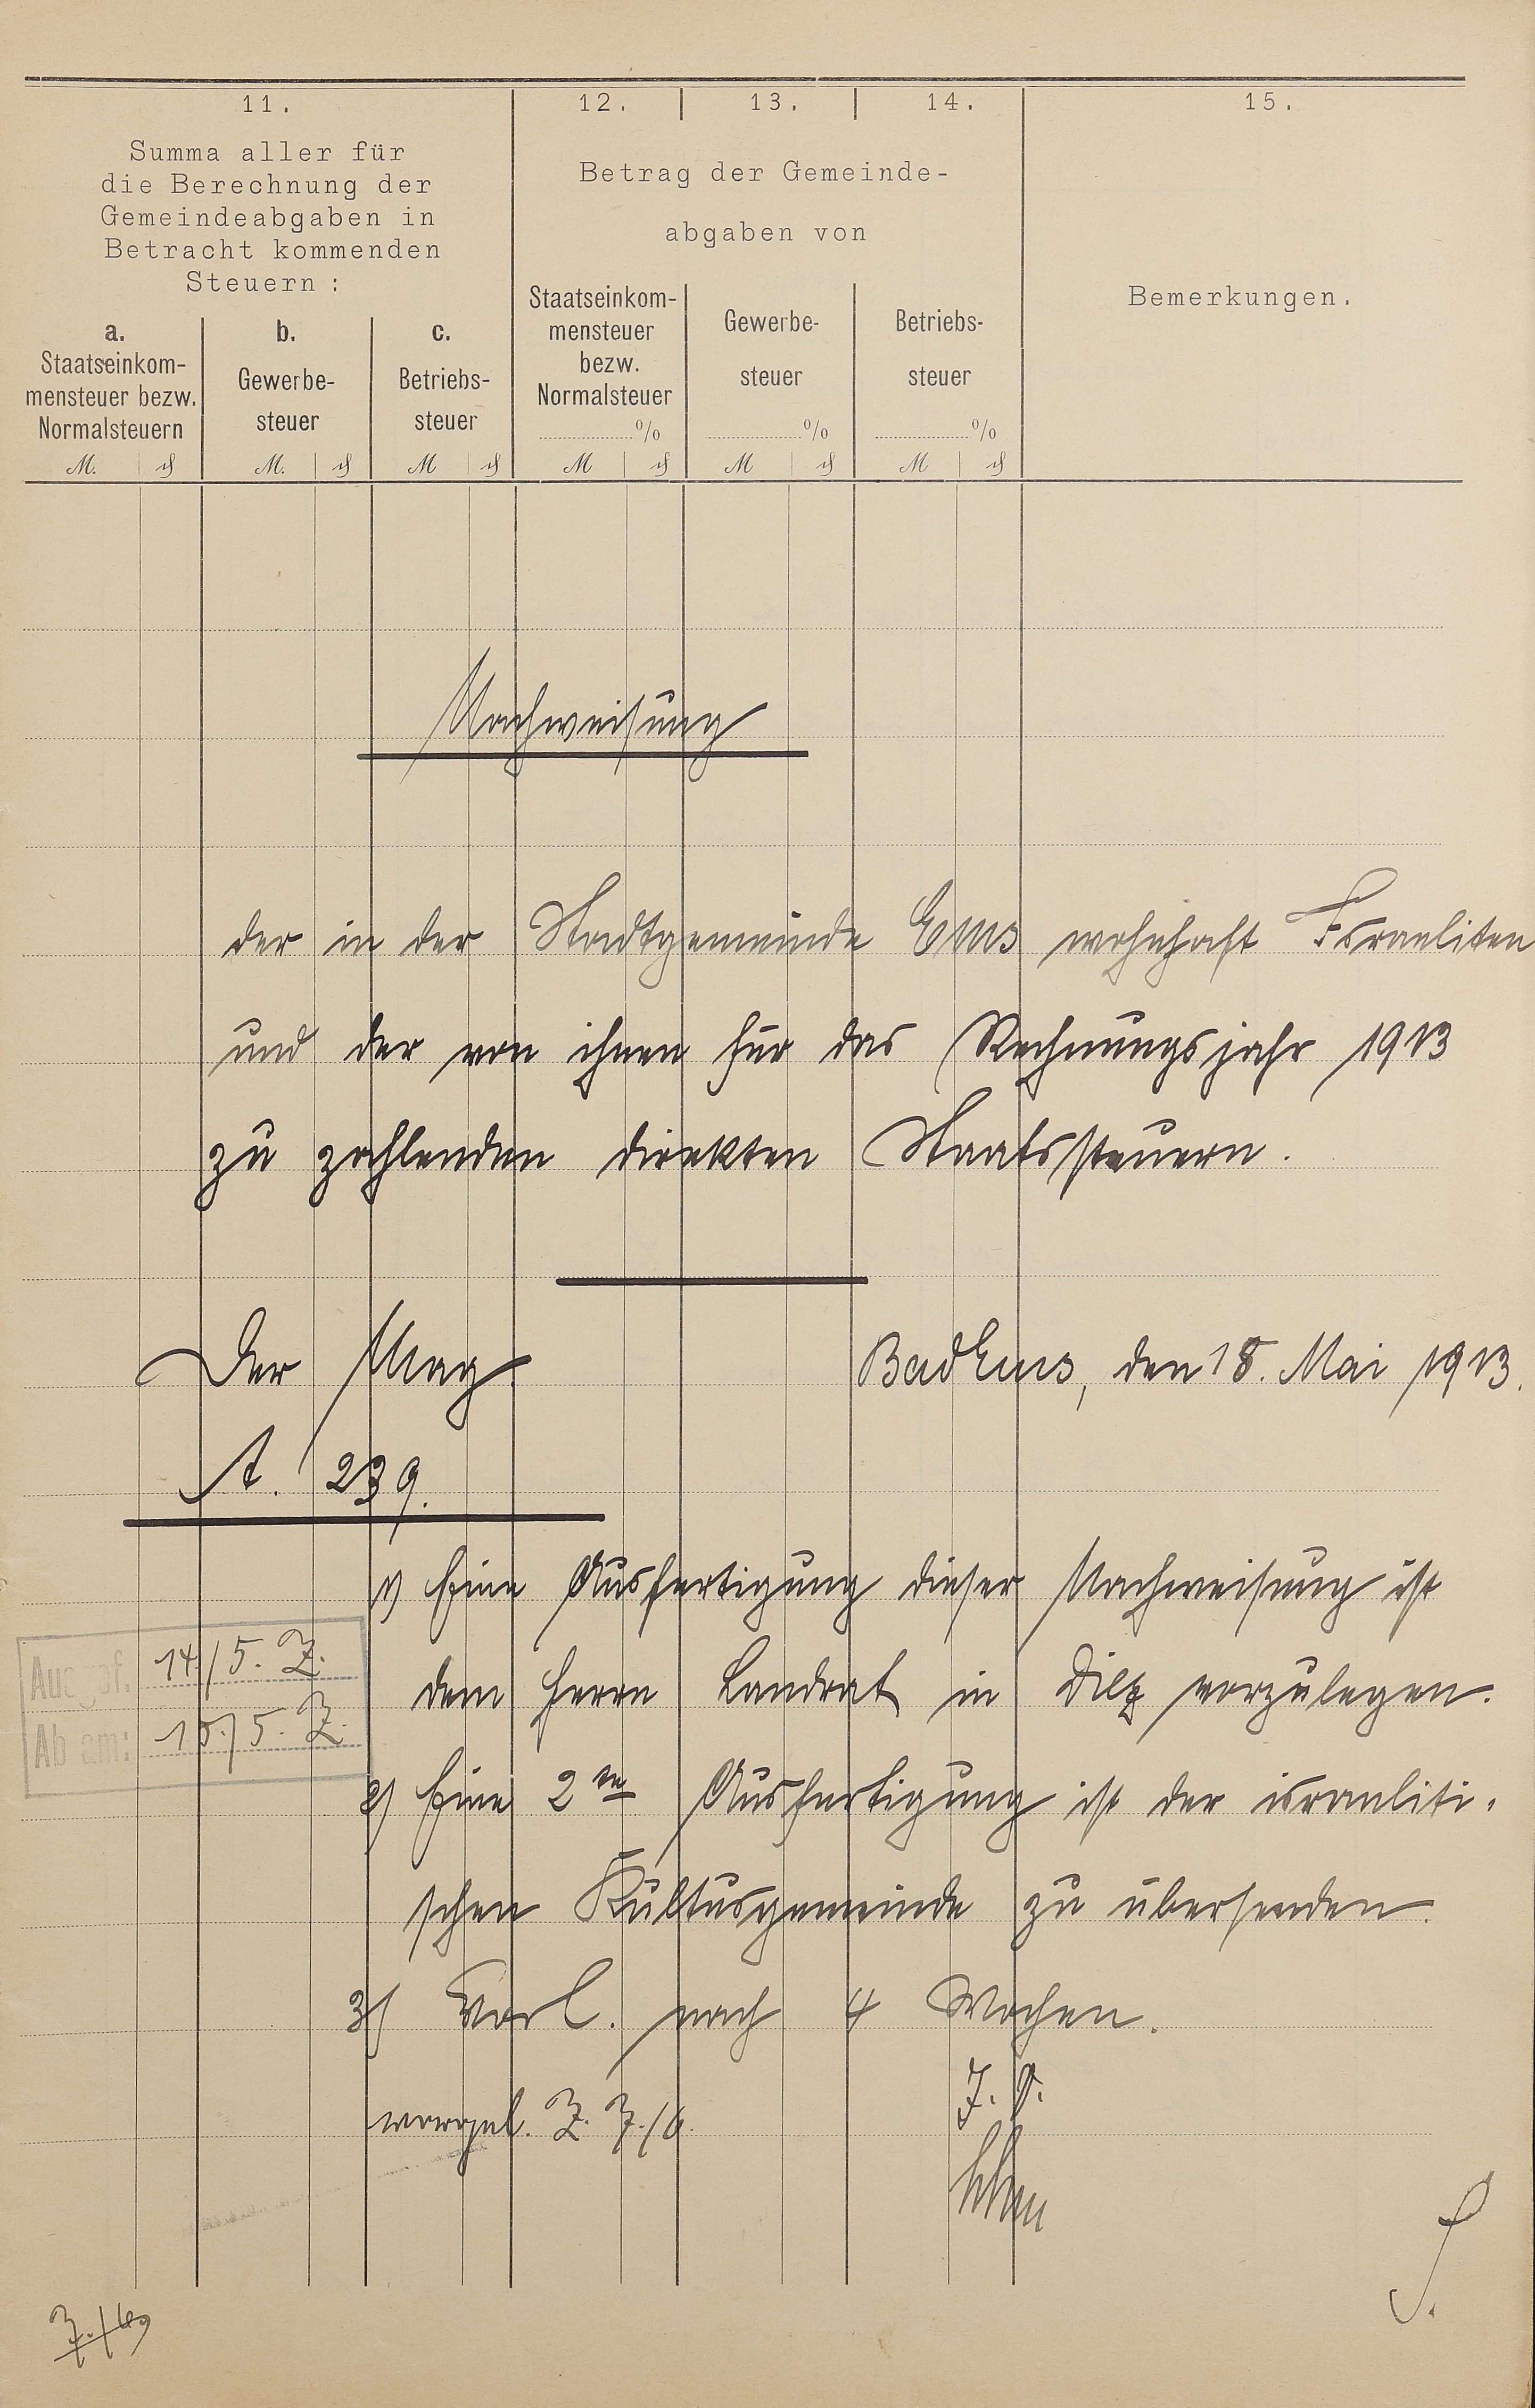 11. 12. 13. 14. 15.
Summa aller für
die Berechnung der
Gemeindeabgaben in
Betracht kommenden
Steuern:
Betrag der Gemeinde-
abgaben von
Bemerkungen.
a.
Staatseinkom-
mensteuer bezw.
Normalsteuern
b.
Gewerbe-
steuer
c.
Betriebs-
steuer
Staatseinkom-
mensteuer
bezw.
Normalsteuer
%
Gewerbe-
steuer
%
Betriebs-
steuer
%
M. ₰ M. ₰ M ₰ M ₰ M ₰ M ₰
Nachweisung
der in der Stadtgemeinde Ems wohnhaft Israeliten
und der von ihnen für das Rechnungsjahr 1913
zu zahlenden direkten Staatssteuern.
Der Mag. Bad Ems, den 18. Mai 1913.
A. 239.
1) Eine Ausfertigung dieser Nachweisung ist
dem Herrn Landrat in Diez vorzulegen.
Ausgef. 14/5. Z.
Ab am: 15./5. Z.
2) Eine 2te Ausfertigung ist der israeliti-
schen Kultusgemeinde zu übersenden.
3) Vorl. nach 4 Wochen.
vorgel. Z. 7./6.